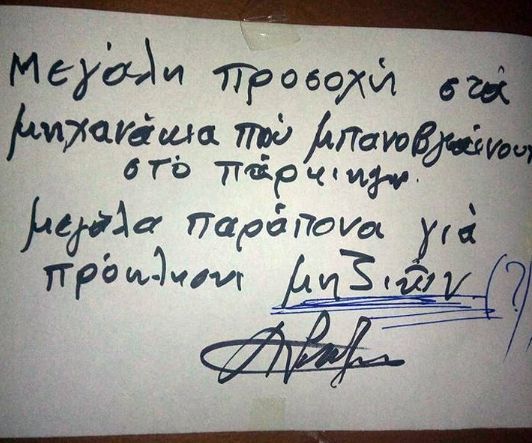 Μεγάλη προσοχή στά
μηχανάκια πού μπανοβγαίνουν
στό πάρκινγκ.
μεγάλα παράπονα γιά
πρόκληση μηζιτῶν (?)